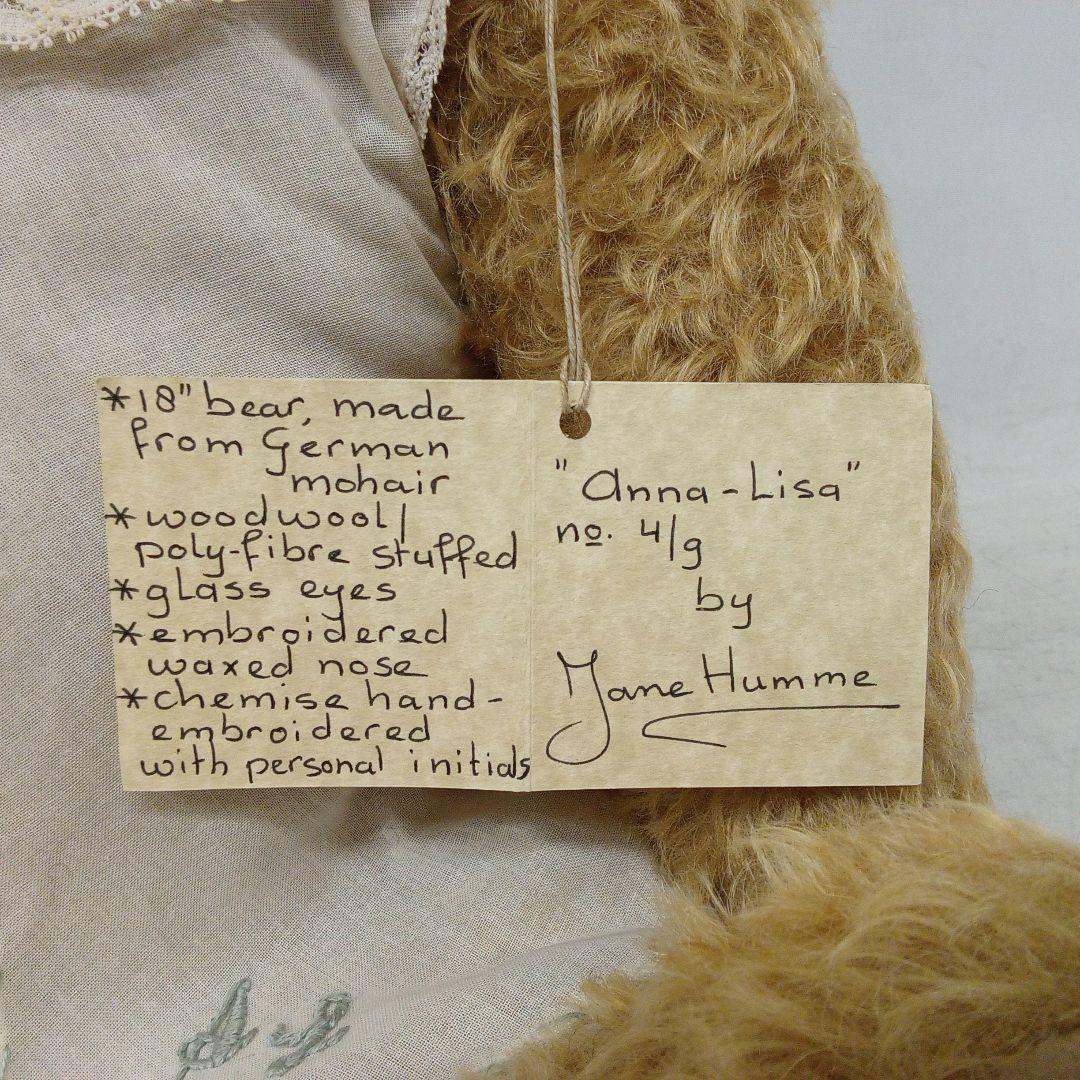 *18" bear, made
from German
mohair
*woodwool/
poly-fibre stuffed
*glass eyes
*embroidered
waxed nose
*chemise hand-
embroidered
with personal initials
"Anna-Lisa"
no. 4/9
by
Jane Humme